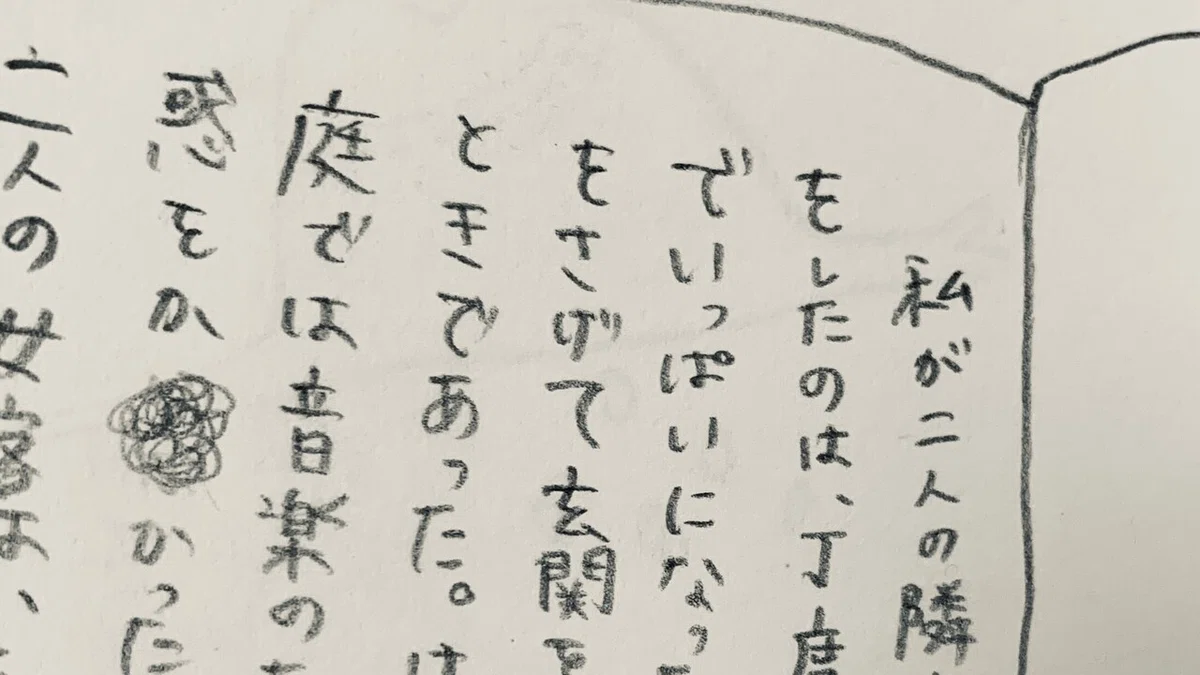 私が二人の隣
をしたのは、丁度
でいっぱいになっ
をさげて玄関を
ときであった。は
庭では音楽の
惑をかかった
二人の女客は、